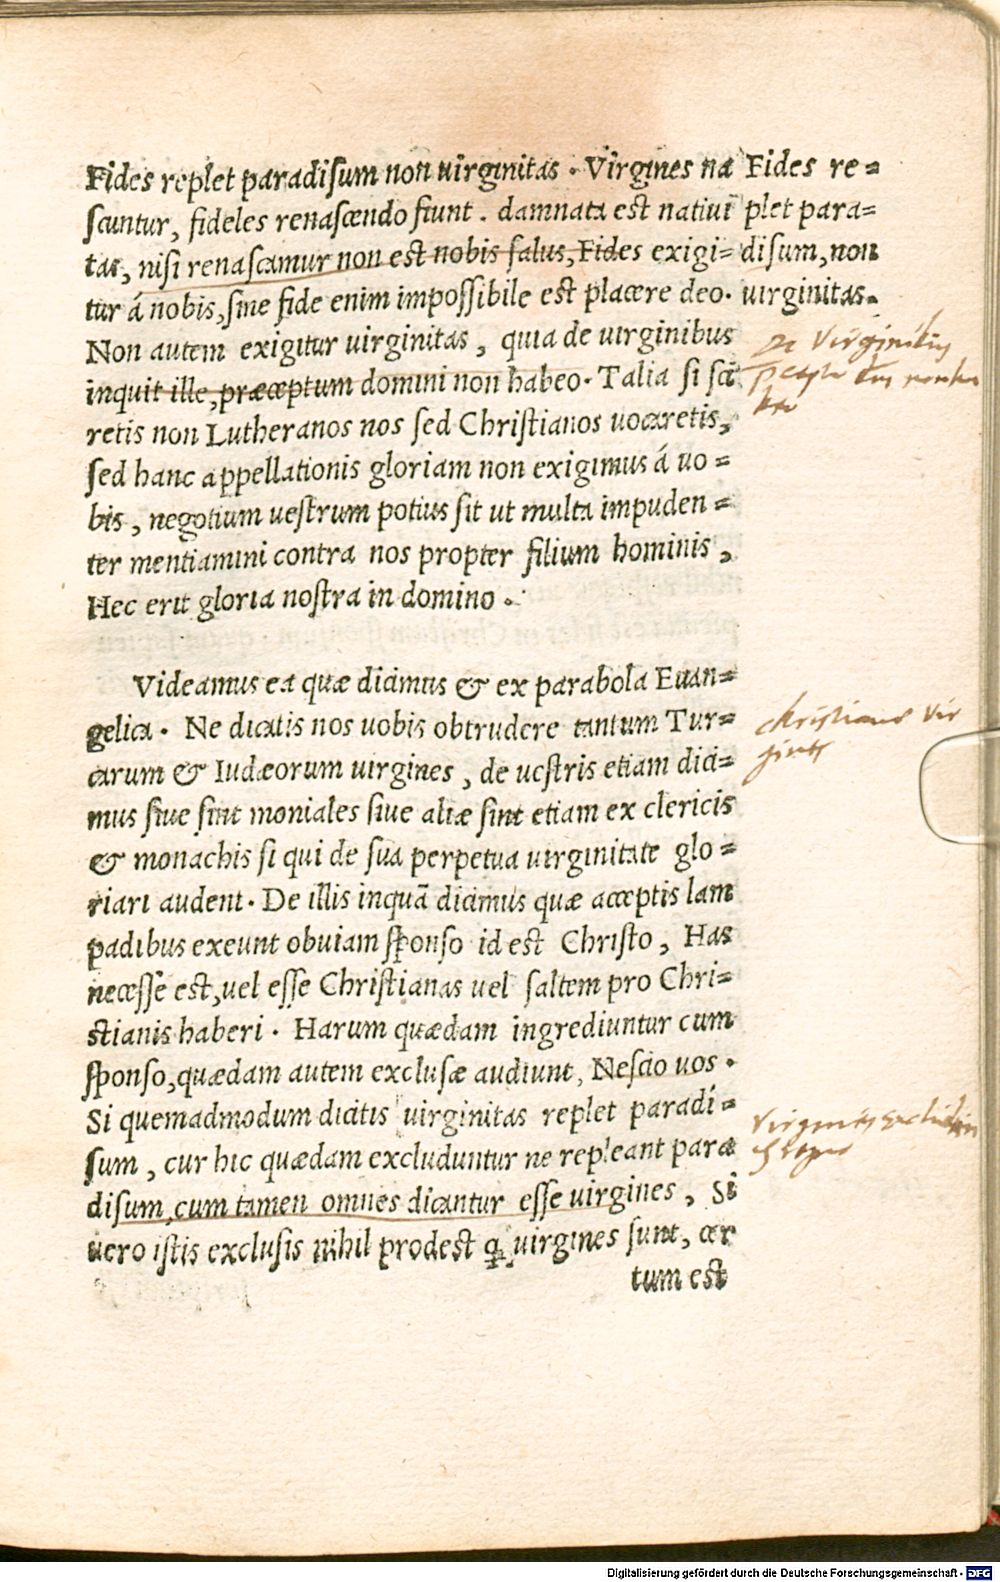 Fides replet paradisum non virginitas. Virgines na
scuntur, fideles renascendo fiunt. damnata est nativi
tas, nisi renascamur non est nobis salus, Fides exigi=
tur á nobis, sine fide enim impossibile est placere deo.
Non autem exigitur virginitas, quia de virginibus
inquit ille, præceptum domini non habeo. Talia si sci
retis non Lutheranos nos sed Christianos vocaretis,
sed hanc appellationis gloriam non exigimus á uo=
bis, negotium uestrum potius sit ut multa impuden=
ter mentiamini contra nos propter filium hominis,
Hec erit gloria nostra in domino.
Fides re=
plet para=
disum, non
uirginitas.
de virginibus
christianae vir
gines
Videamus ea quæ dicimus & ex parabola Euan=
gelica. Ne dicatis nos uobis obtrudere tantum Tur=
carum & Iudæorum uirgines, de uestris etiam dici=
mus siue sint moniales siue aliæ sint etiam ex clericis
& monachis si qui de sua perpetua uirginitate glo=
riari audent. De illis inquā dicimus quæ acceptis lam
padibus exeunt obuiam sponso id est Christo, Has
necesse est, uel esse Christianas uel saltem pro Chri=
stianis haberi. Harum quædam ingrediuntur cum
sponso, quædam autem exclusæ audiunt, Nescio uos.
Si quemadmodum dicitis uirginitas replet paradi=
sum, cur hic quædam excluduntur ne repleant para
disum, cum tamen omnes dicantur esse uirgines, Si
uero istis exclusis nihil prodest ꝙ uirgines sunt, cer
tum est
Digitalisierung gefördert durch die Deutsche Forschungsgemeinschaft - DFG